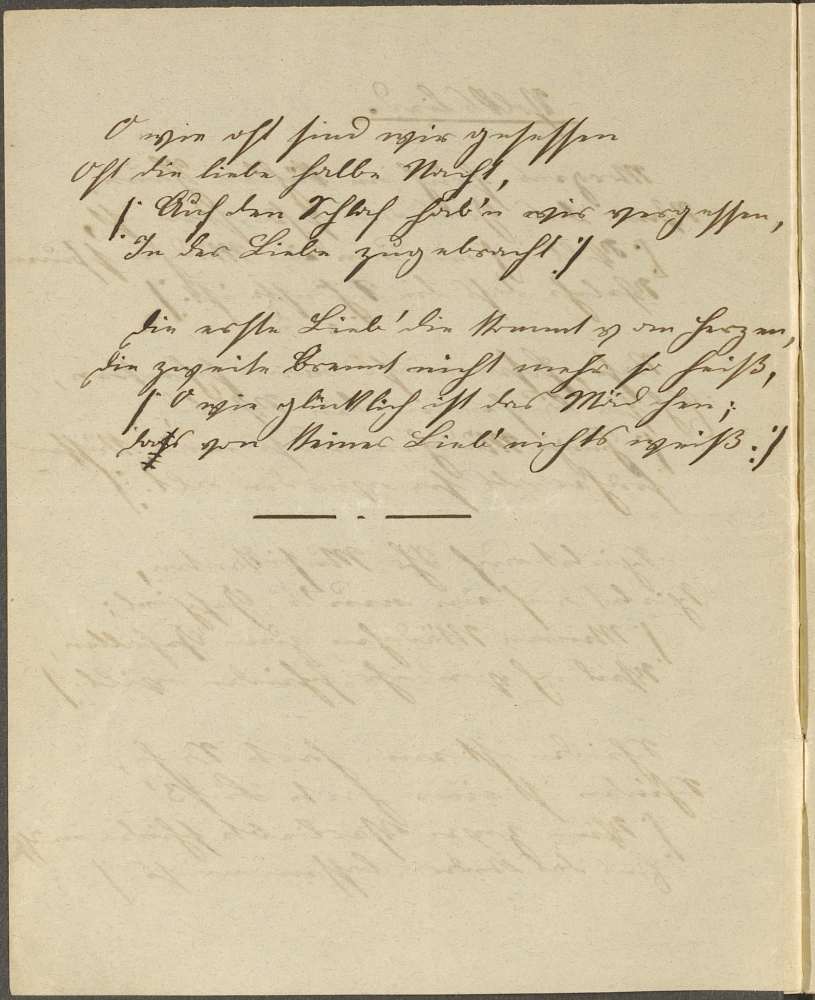 O wie oft sind wir gesessen
Oft die liebe halbe Nacht,
/: Auf den Schlaf hab'n wir vergessen,
In der Liebe zugebracht :/
Die erste Lieb' die kommt vom Herzen,
Die zweite brennt nicht mehr so heiß,
/: O wie glücklich ist das Mädchen;
Das von keiner Lieb' nichts weiß :/